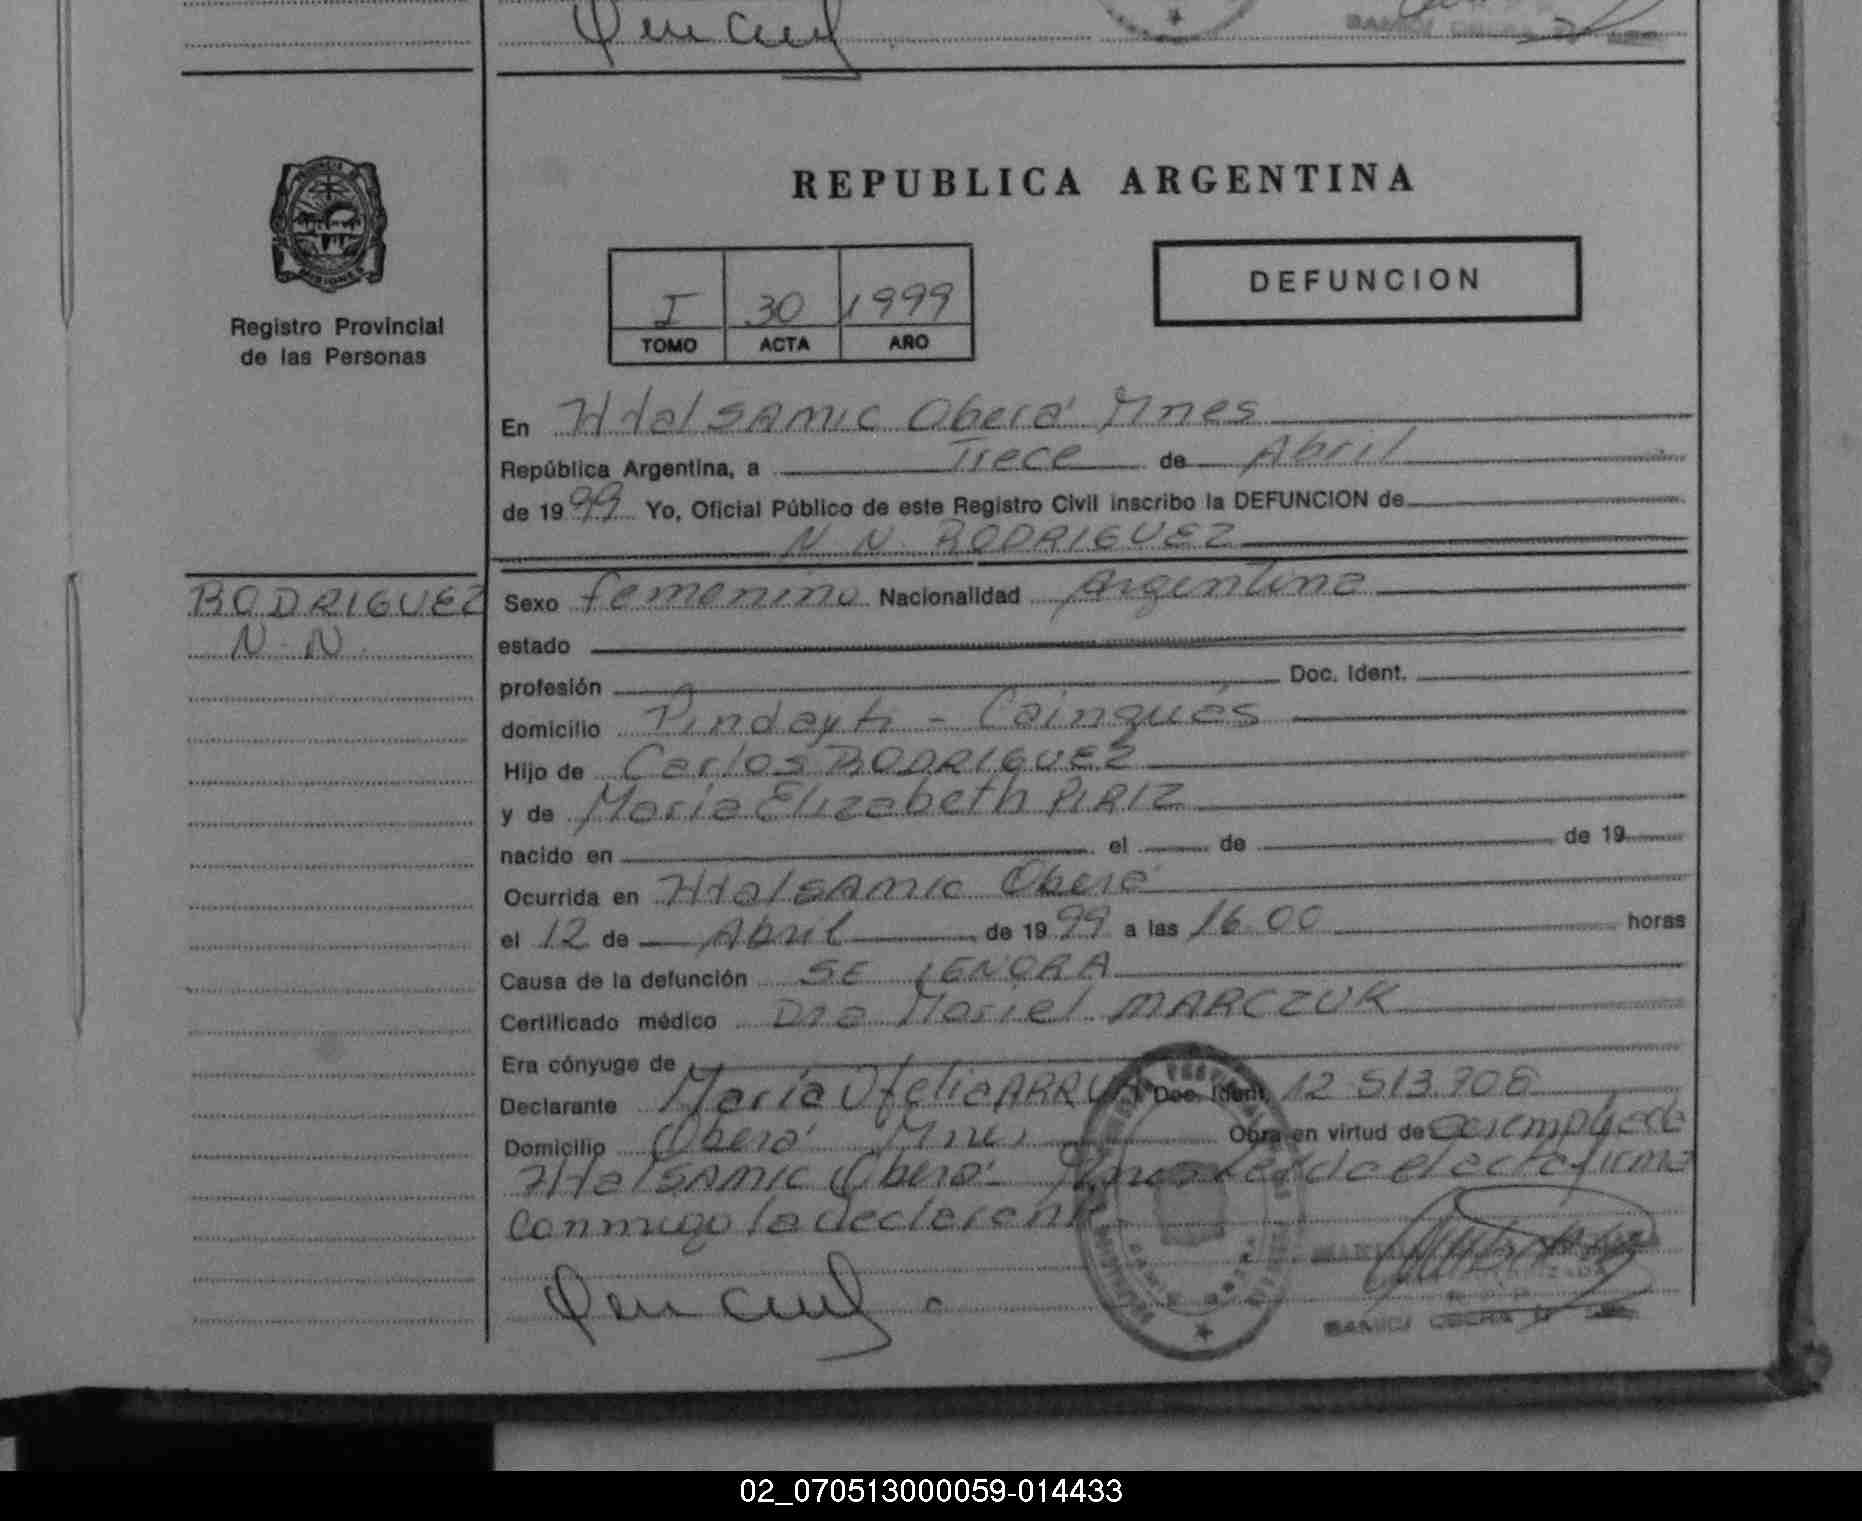 REPUBLICA ARGENTINA
I 30 1999
TOMO ACTA AÑO
DEFUNCION
Registro Provincial
de las Personas
En Htal SAMIC Oberá Mnes
República Argentina, a Trece de Abril
de 1999 Yo, Oficial Público de este Registro Civil inscribo la DEFUNCION de
N N RODRIGUEZ
RODRIGUEZ
N. N.
Sexo femenino Nacionalidad Argentina
estado
profesión Doc. Ident.
domicilio Pindayti - Cainguás
Hijo de Carlos RODRIGUEZ
y de Maria Elizabeth PIRIZ
nacido en el de de 19
Ocurrida en Htal SAMIC Oberá
el 12 de Abril de 1999 a las 16 00 horas
Causa de la defunción SE IGNORA
Certificado médico Dra Mariel MARCZUK
Era cónyuge de
Declarante María Ofelia Doc. Ident. 12 513.908
Domicilio Oberá Mnes Obra en virtud de ser empleada
Htal SAMIC Oberá Mnes Leida el acta firma
conmigo la declarante
SAMIC OBERA
02_070513000059-014433